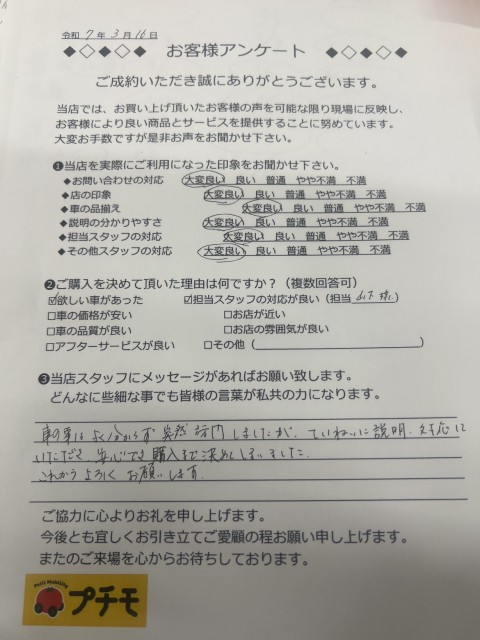 令和 7 年 3 月 16 日
◆◇◆◇◆ お客様アンケート ◆◇◆◇◆
ご成約いただき誠にありがとうございます。
当店では、お買い上げ頂いたお客様の声を可能な限り現場に反映し、
お客様により良い商品とサービスを提供することに努めています。
大変お手数ですが是非お声をお聞かせ下さい。
❶当店を実際にご利用になった印象をお聞かせ下さい。
◆お問い合わせの対応 大変良い 良い 普通 やや不満 不満
◆店の印象 大変良い 良い 普通 やや不満 不満
◆車の品揃え 大変良い 良い 普通 やや不満 不満
◆説明の分かりやすさ 大変良い 良い 普通 やや不満 不満
◆担当スタッフの対応 大変良い 良い 普通 やや不満 不満
◆その他スタッフの対応 大変良い 良い 普通 やや不満 不満
❷ご購入を決めて頂いた理由は何ですか？（複数回答可）
☑欲しい車があった ☑担当スタッフの対応が良い（担当 山下 様）
□車の価格が安い □お店が近い
□車の品質が良い □お店の雰囲気が良い
□アフターサービスが良い □その他（ ）
❸当店スタッフにメッセージがあればお願い致します。
どんなに些細な事でも皆様の言葉が私共の力になります。
車の事はよく分からず突然訪問しましたが、ていねいに説明、対応して
いただき、安心して購入まで決めてしまいました。
これからよろしくお願いします。
ご協力に心よりお礼を申し上げます。
今後とも宜しくお引き立てご愛顧の程お願い申し上げます。
またのご来場を心からお待ちしております。
Petit Mobility
プチモ